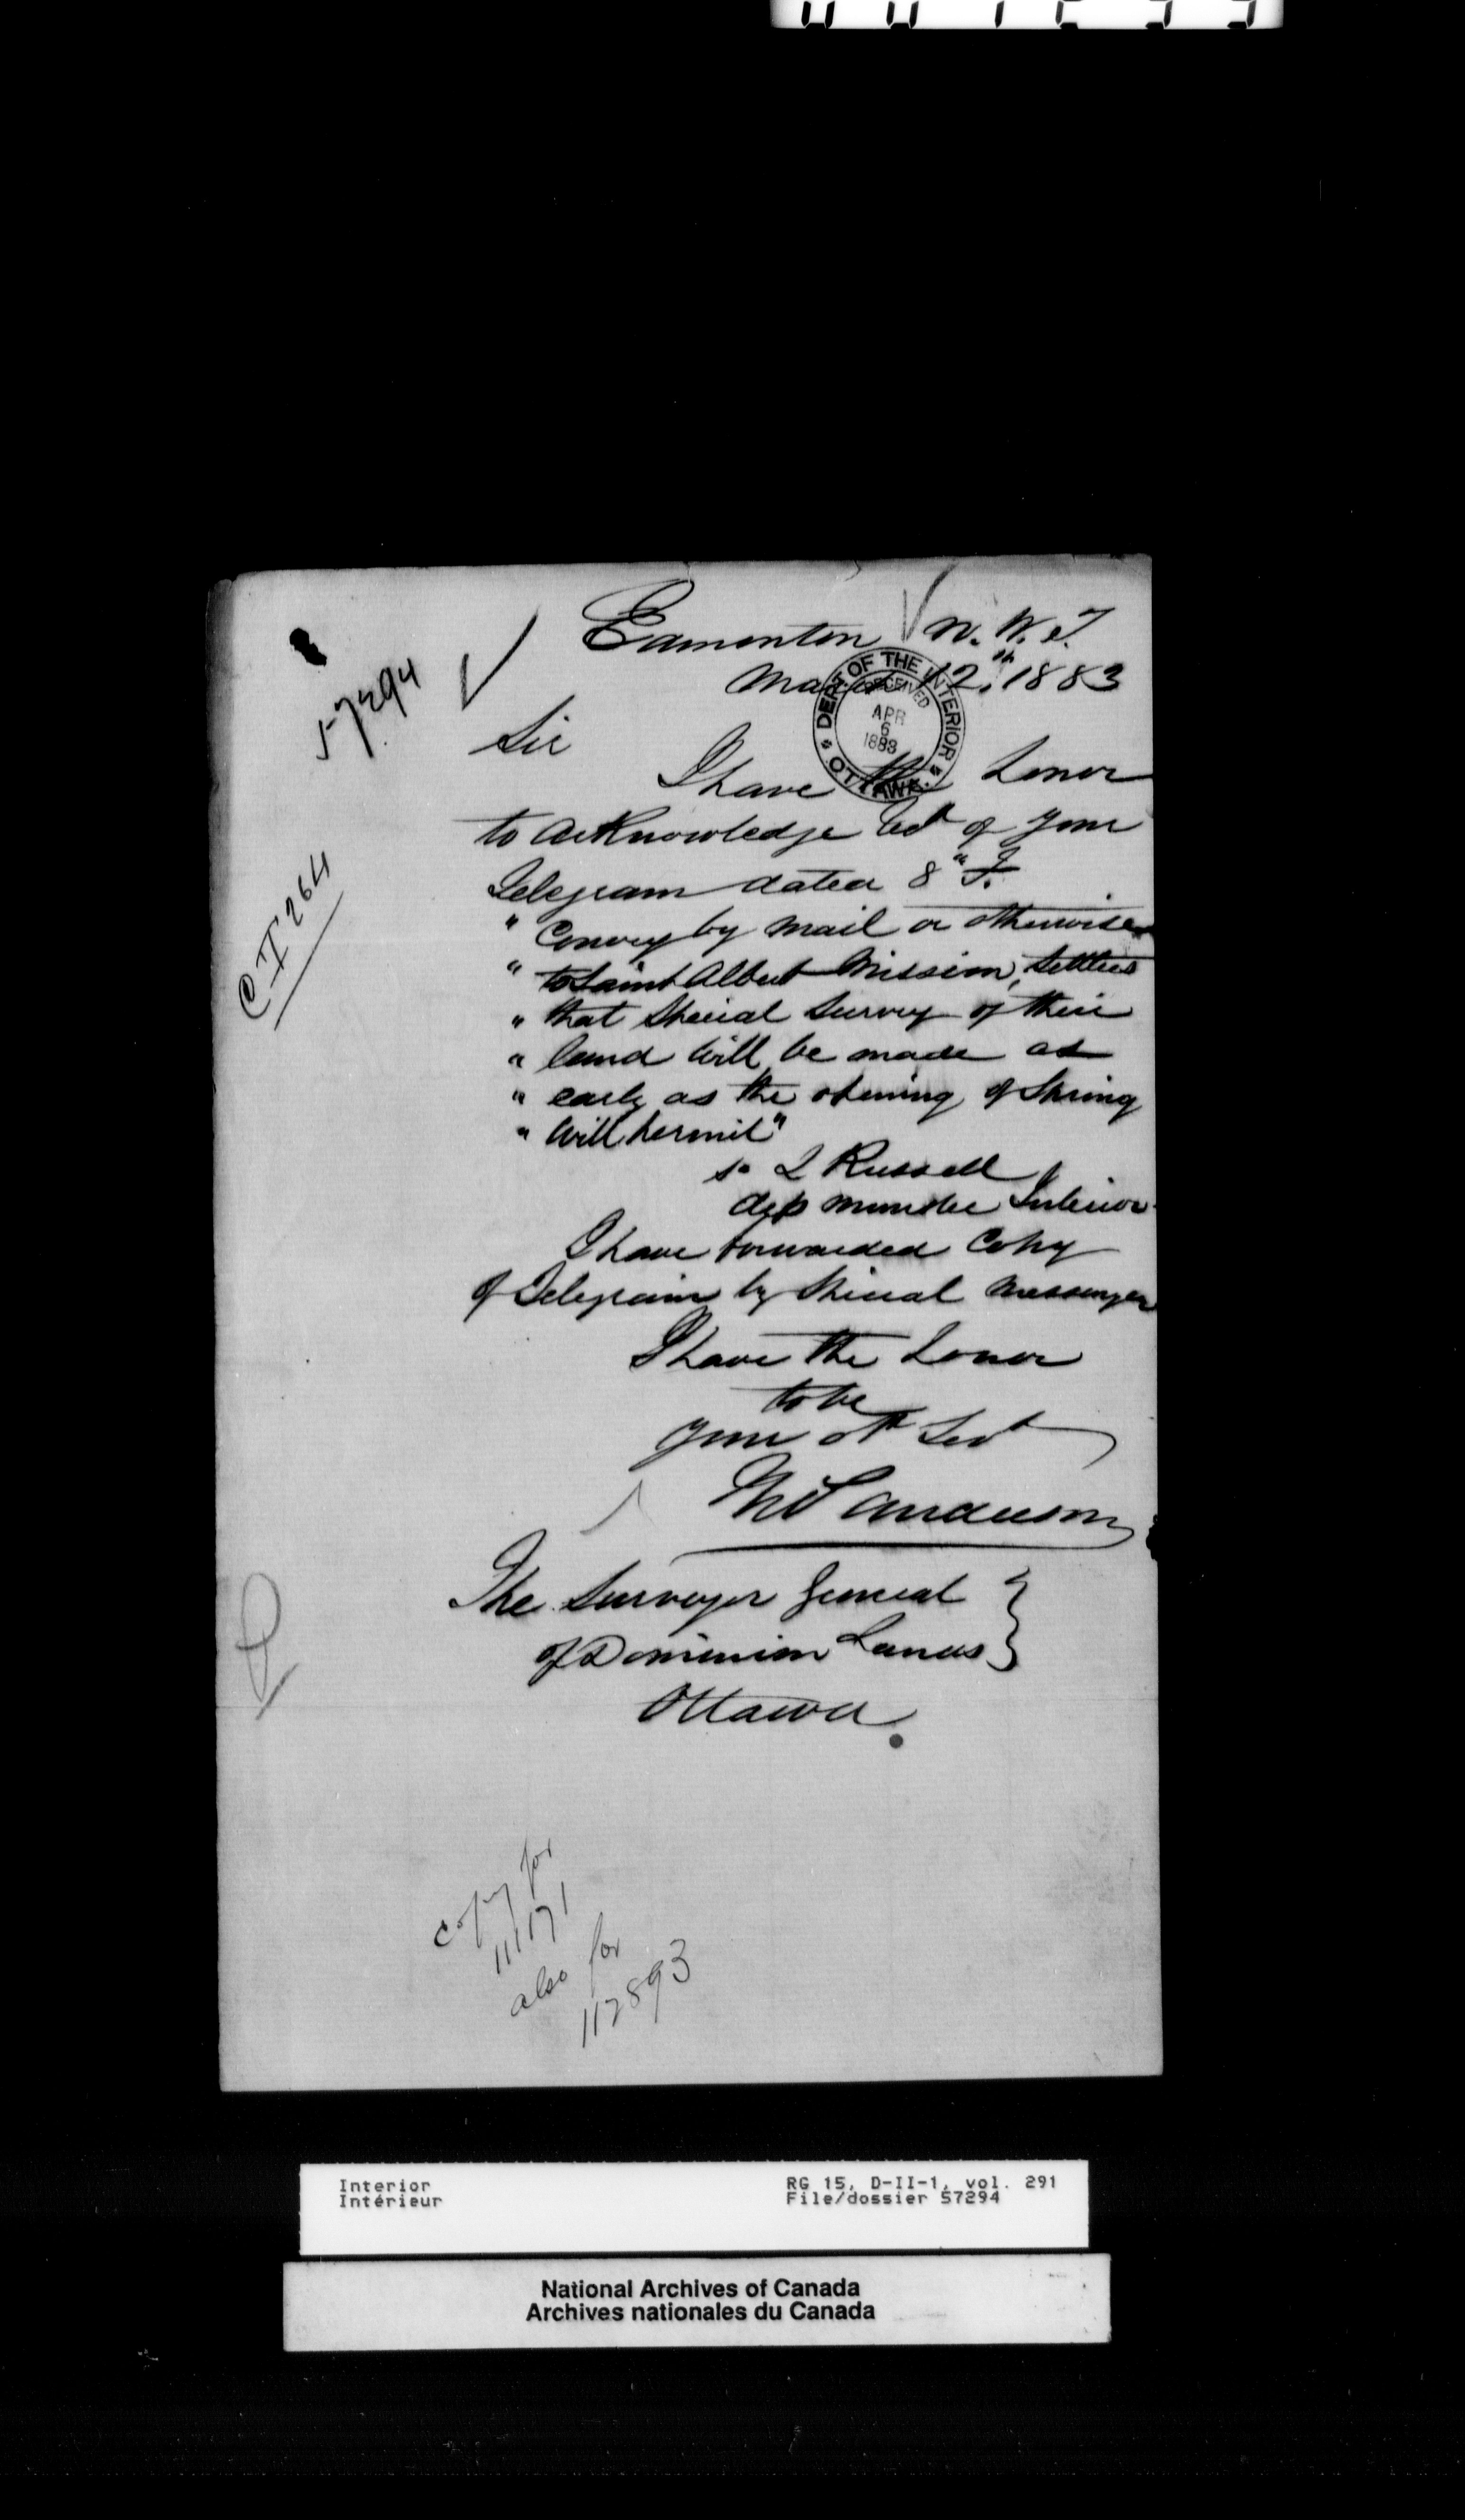 Edmonton N. W. T.
March 12th 1883
57294
DEPT OF THE INTERIOR
RECEIVED
APR
6
1883
OTTAWA.
Sir
I have the honor
to acknowledge of your
Telegram dated 8"
" Convey by mail or otherwise
" to Saint Albert Mission, Settlers
" that Special Survey of their
" land will be made as
" early as the opening of Spring
" will permit"
L Russell
dep minister Interior
I have forwarded Copy
of Telegram by Special Messenger
I have the honor
to be
your ob Servt
Anderson
The Surveyor General
of Dominion Lands
Ottawa
C II 264
copy for
111171
also for
112893
Interior
Intérieur
RG 15, D-II-1, vol. 291
File/dossier 57294
National Archives of Canada
Archives nationales du Canada